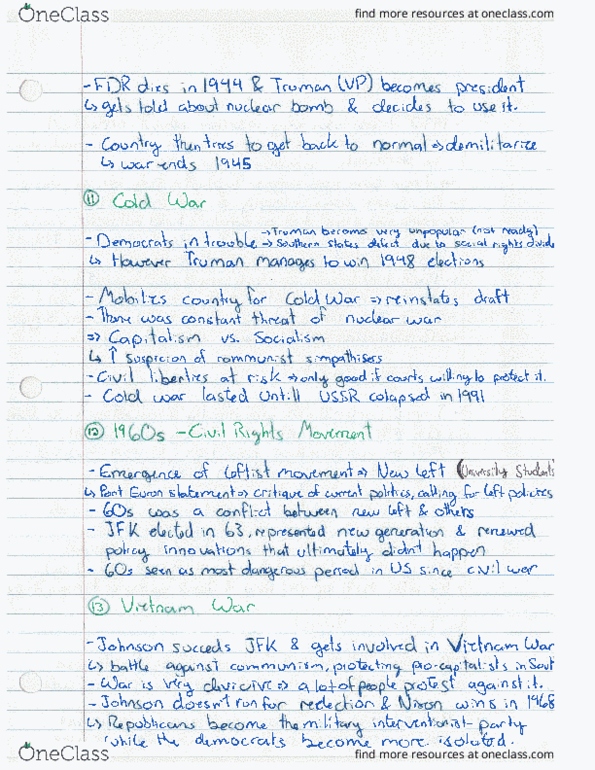 OneClass
find more resources at oneclass.com
- FDR dies in 1944 & Truman (VP) becomes president
↳ gets told about nuclear bomb & decides to use it.
- Country then tries to get back to normal ⇒ demilitarize
↳ war ends 1945
⑪ Cold War
→ Truman became very unpopular (not ready)
- Democrats in trouble → Southern states defect due to social rights divide
↳ However Truman manages to win 1948 elections
- Mobilizes country for Cold War ⇒ reinstates draft
- There was constant threat of nuclear war
⇒ Capitalism vs. Socialism
↳ ↑ suspicion of communist simpathisers
- Civil liberties at risk ⇒ only good if courts willing to protect it.
- Cold war lasted untill USSR colapsed in 1991
⑫ 1960s - Civil Rights Movement
- Emergence of leftist movement ⇒ New Left (University Students
↳ Port Euron statement ⇒ critique of current politics, calling for left policies
- 60s was a conflict between new left & others
- JFK elected in 63, represented new generation & renewed
policy innovations that ultimately didn't happen
- 60s seen as most dangerous period in US since civil war
⑬ Vietnam War
- Johnson succeds JFK & gets involved in Vietnam War
↳ battle against communism, protecting pro-capitalists in Sout
- War is very divicive ⇒ a lot of people protest against it.
- Johnson doesn't run for reelection & Nixon wins in 1968
↳ Republicans become the military interventionist party
while the democrats become more isolated.
OneClass
find more resources at oneclass.com